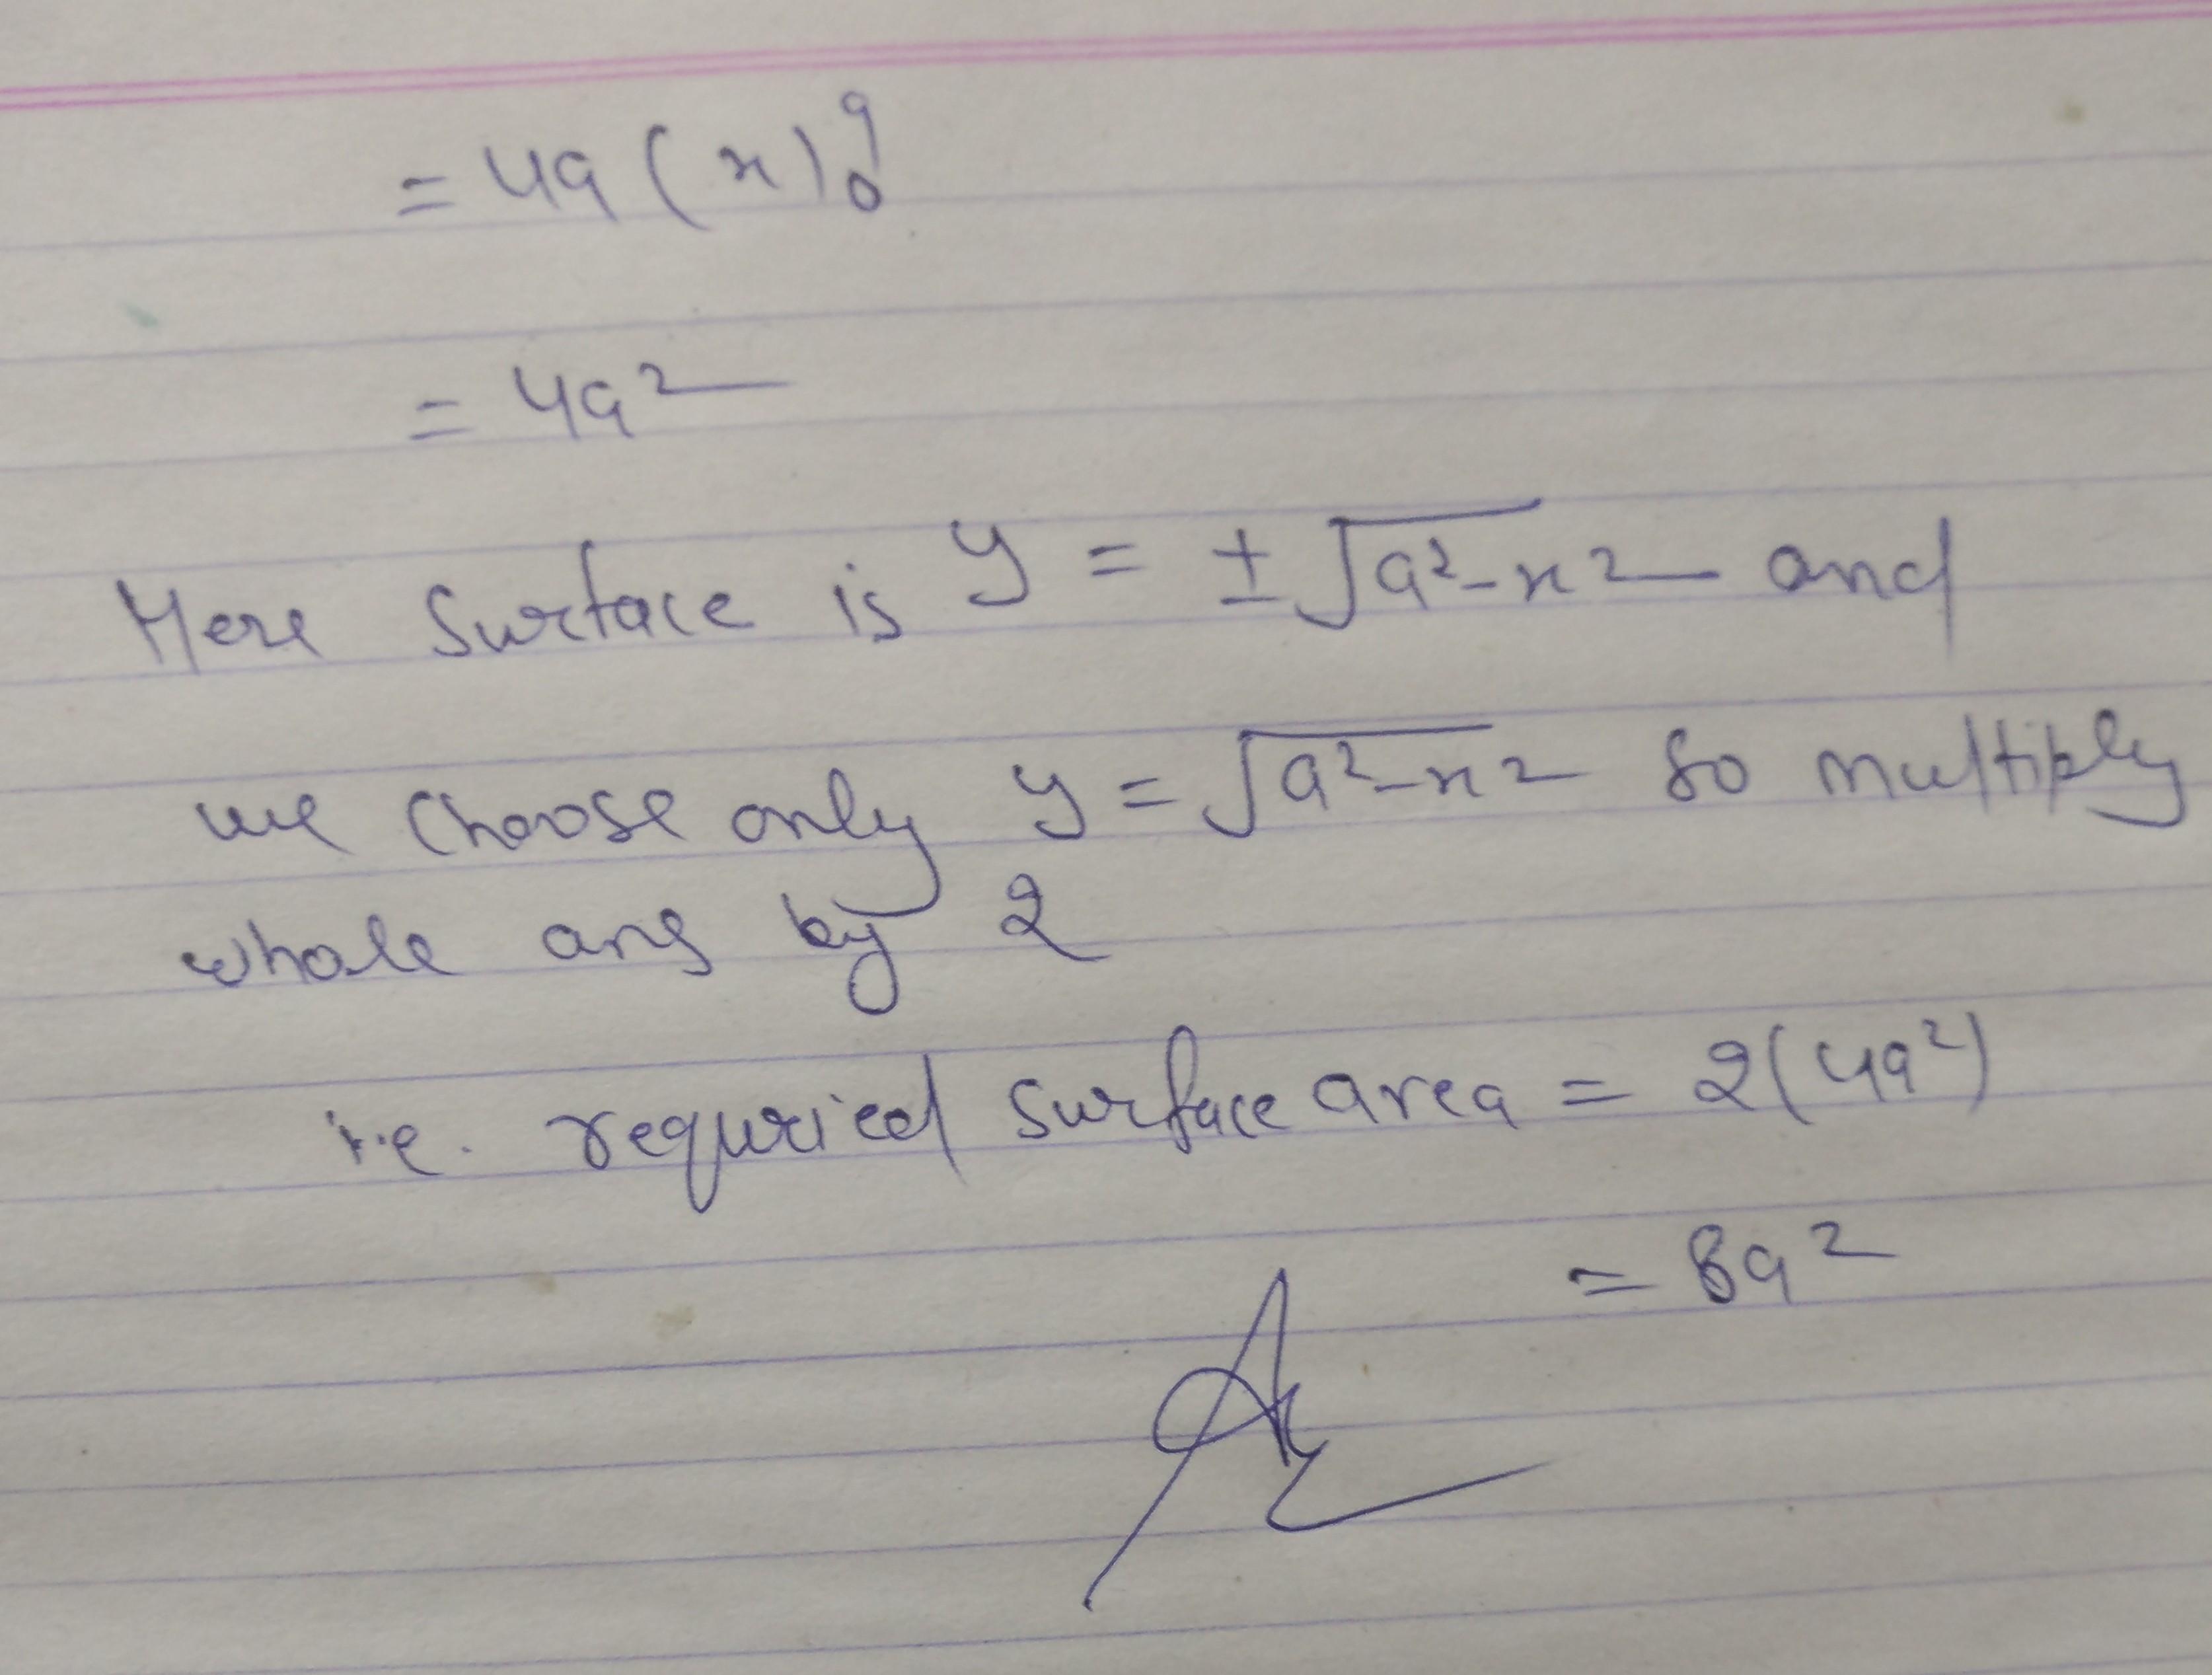 = 4a (x)₀ᵃ
= 4a²
Here Surface is y = ±√a²-x² and
we choose only y = √a²-x² so multiply
whole ans by 2
i.e. requried surface area = 2(4a²)
= 8a²